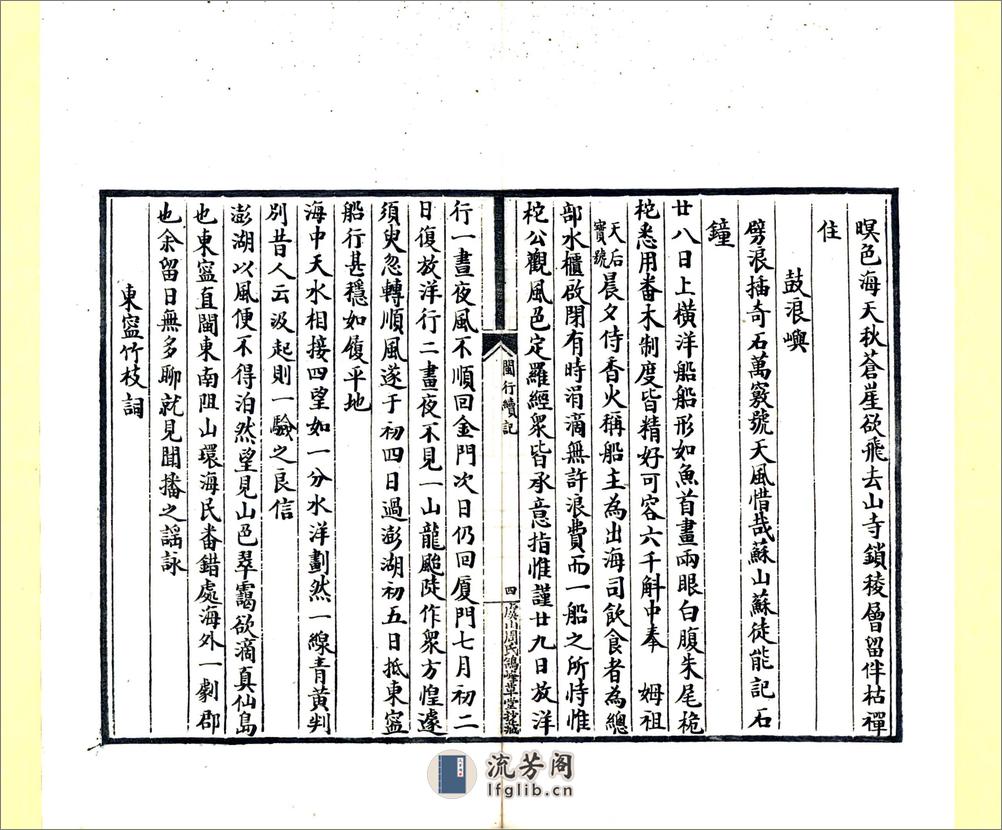 暝色海天秋蒼崖欲飛去山寺鎖稜層留伴枯禪
住
鼓浪嶼
劈浪插奇石萬竅號天風惜哉蘇山蘇徒能記石
鐘
廿八日上橫洋船船形如魚首畫兩眼白腹朱尾桅
柁悉用番木制度皆精好可容六千斛中奉 姆祖
天后
寶號
晨夕侍香火稱船主為出海司飲食者為總
部水櫃啟閉有時涓滴無許浪費而一船之所恃惟
柁公觀風色定羅經眾皆承意指惟謹廿九日放洋
閩行續記
四
虞山周氏鴿峰草堂鈔藏
行一晝夜風不順回金門次日仍回厦門七月初二
日復放洋行二晝夜不見一山龍颱陡作眾方惶遽
須臾忽轉順風遂于初四日過澎湖初五日抵東寧
船行甚穩如履平地
海中天水相接四望如一分水洋劃然一線青黃判
別昔人云汲起則一驗之良信
澎湖以風便不得泊然望見山色翠靄欲滴真仙島
也東寧直閩東南阻山環海民番錯處海外一劇郡
也余留日無多聊就見聞播之謡詠
東寧竹枝詞
流芳阁
lfglib.cn